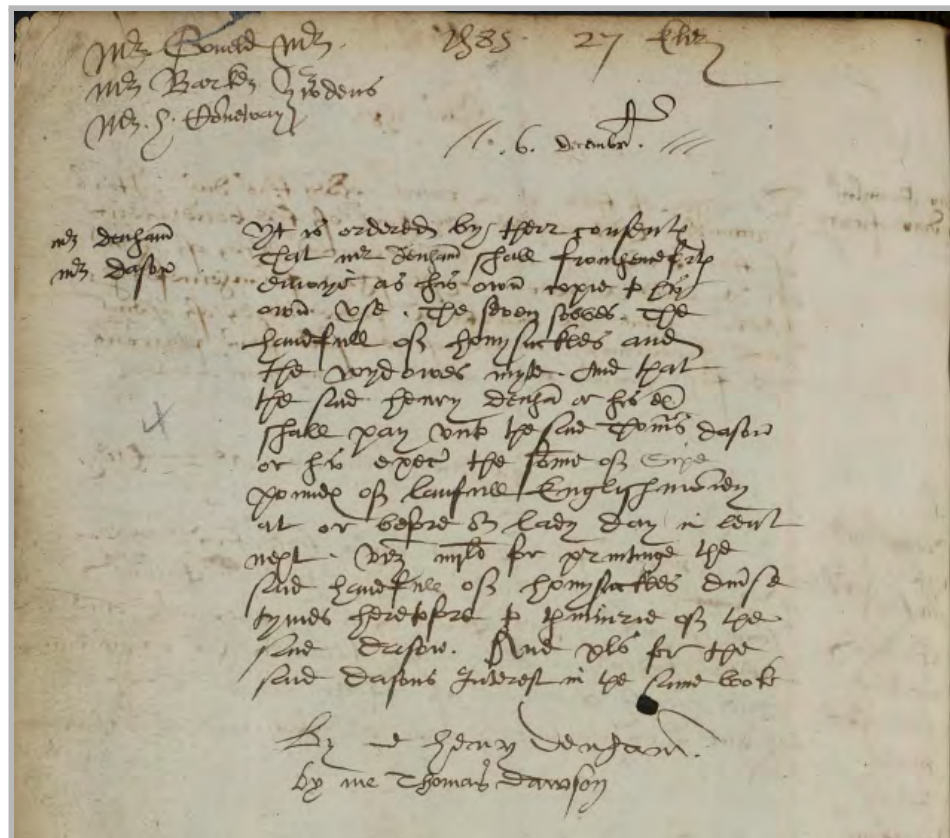 Mr Coneld Mr. 1585 27 Eliz
Mr Barker
Mr. H. Coneway wardens
6. decembr.
mr denham
mr dason
Yt is ordered by their consent
That mr Denham shall fromhencforth
enioye as his own copie & his
own use. The seven sobbes. The
handfull of honysuckles and
the wydowes myte. And that
the said henry denham or his
shall pay unto the said Thoms dason
or his the some of
poundes of laufull English money
at or before or lady day in lent
next. viz for printinge the
said handfull of honysuckles
tymes heretofore the
said dason. And xls for the
said dasons Interest in the same book
By me henry denham.
by me Thomas dawson